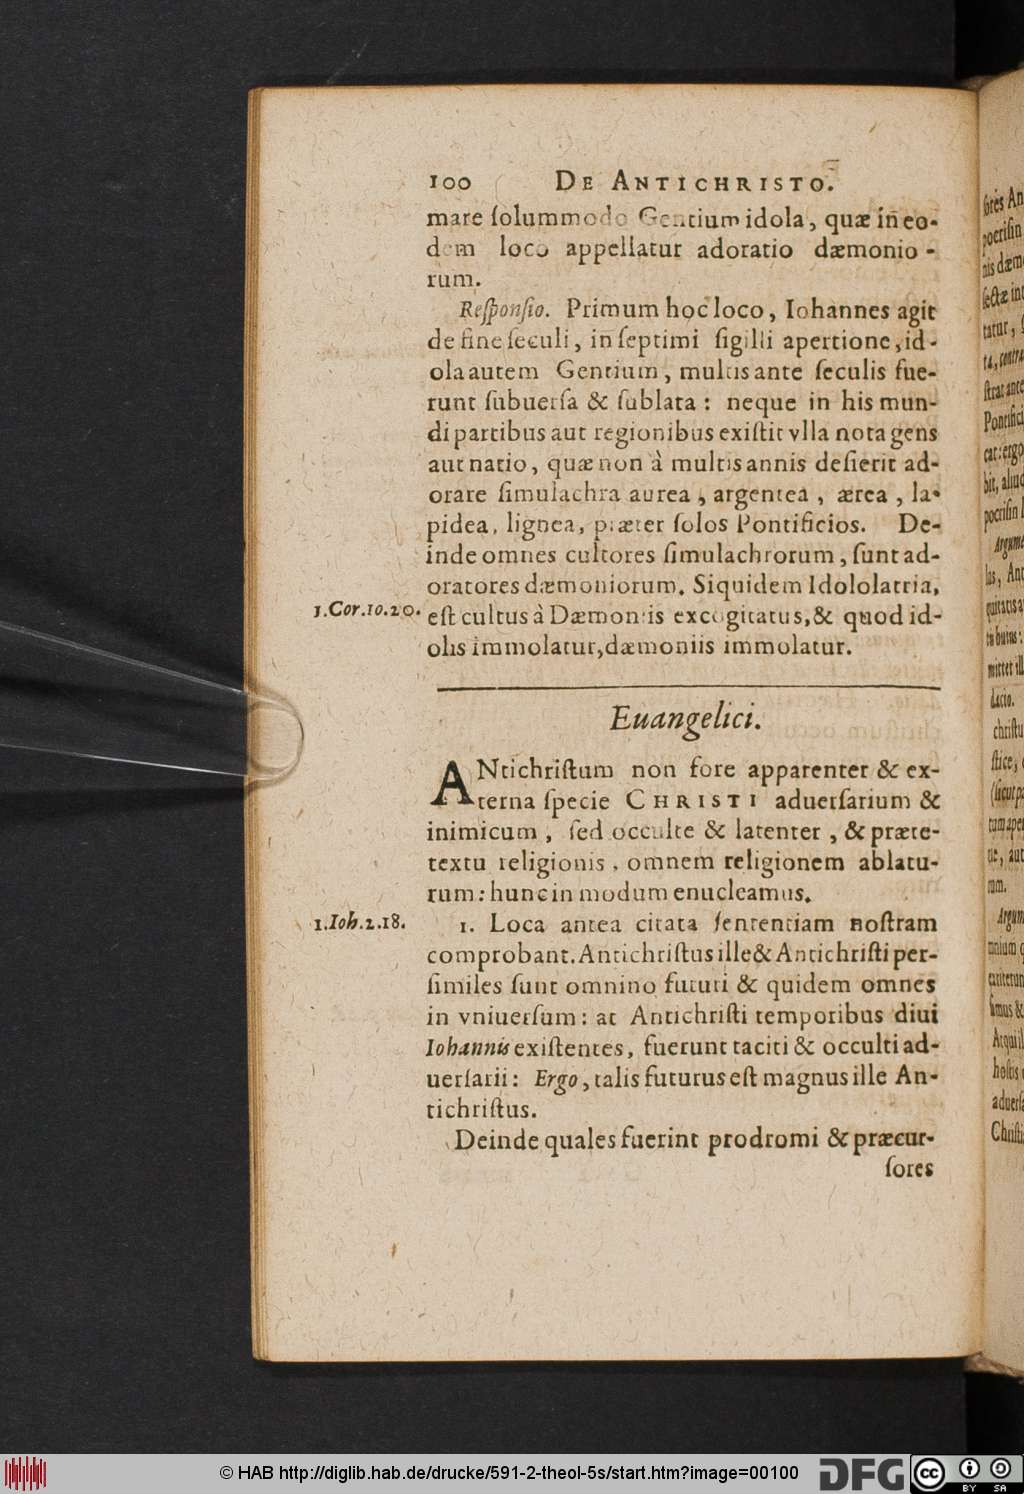 100 DE ANTICHRISTO.
mare ſolummodo Gentium idola, quæ in eo-
dem loco appellatur adoratio dæmonio-
rum.
Reſponſio. Primum hoc loco, Iohannes agit
de fine ſeculi, in ſeptimi ſigilli apertione, id-
ola autem Gentium, multis ante ſeculis fue-
runt ſubuerſa & ſublata: neque in his mun-
di partibus aut regionibus exiſtit vlla nota gens
aut natio, quæ non à multis annis deſierit ad-
orare ſimulachra aurea, argentea, ærea, la-
pidea, lignea, præter ſolos Pontificios. De-
inde omnes cultores ſimulachrorum, ſunt ad-
oratores dæmoniorum. Siquidem Idololatria,
1.Cor.10.20.
eſt cultus à Dæmoniis excogitatus, & quod id-
olis immolatur, dæmoniis immolatur.
Euangelici.
ANtichriſtum non fore apparenter & ex-
terna ſpecie CHRISTI aduerſarium &
inimicum, ſed occulte & latenter, & præte-
textu religionis, omnem religionem ablatu-
rum: hunc in modum enucleamus.
1.Ioh.2.18.
1. Loca antea citata ſententiam noſtram
comprobant. Antichriſtus ille & Antichriſti per-
ſimiles ſunt omnino futuri & quidem omnes
in vniuerſum: at Antichriſti temporibus diui
Iohannis exiſtentes, fuerunt taciti & occulti ad-
uerſarii: Ergo, talis futurus eſt magnus ille An-
tichriſtus.
Deinde quales fuerint prodromi & præcur-
ſores
© HAB http://diglib.hab.de/drucke/591-2-theol-5s/start.htm?image=00100
DFG
cc BY SA